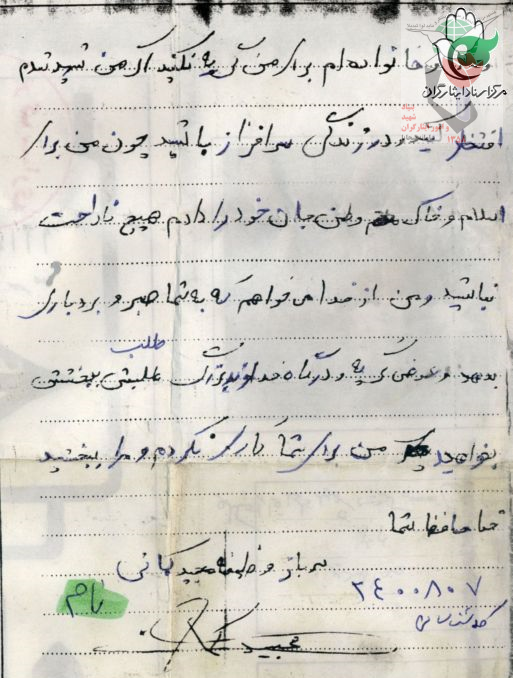 مرکز اسناد ایثارگران
خانواده‌ام برای من گریه نکنید اگر من شهید شدم
افتخار کنید و در زندگی سرافراز باشید چون من برای
اسلام و خاک وطن جان خود را دادم هیچ ناراحت
نباشید و من از خدا می‌خواهم که به شما صبر و بردباری
طلب
بدهد و عوض گریه و درگاه خداوند بزرگ طلبش بخشش
بخواهید من برای شما کاری نکردم و مرا ببخشید
خداحافظ شما
سرباز وظیفه مجید کیانی
۲۴۰۰۸۰۷
کد شناسایی
مجید